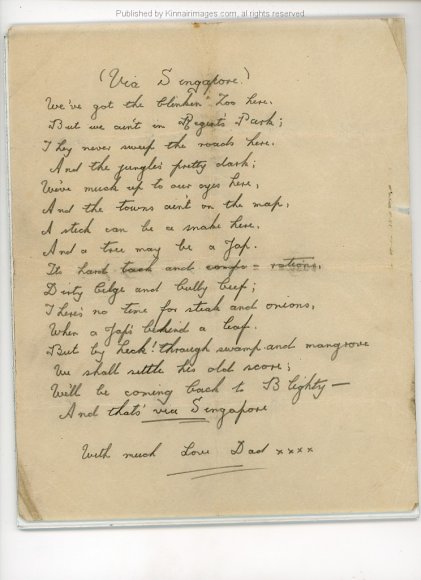 Published by Kinnairimages.com, all rights reserved
(Via Singapore.)
We've got the blinken' Zoo here.
But we ain't in Regent's Park;
They never sweep the roads here.
And the jungle's pretty dark;
We've muck up to our eyes here,
And the towns ain't on the map,
A stick can be a snake here.
And a tree may be a Jap.
Its hard tack and compo - rations,
Dirty bilge and bully beef;
There's no time for steak and onions,
When a Jap's behind a leaf.
But by heck! through swamp and mangrove
We shall settle his old score;
We'll be coming back to Blighty —
And thats' via Singapore
With much Love Dad xxxx